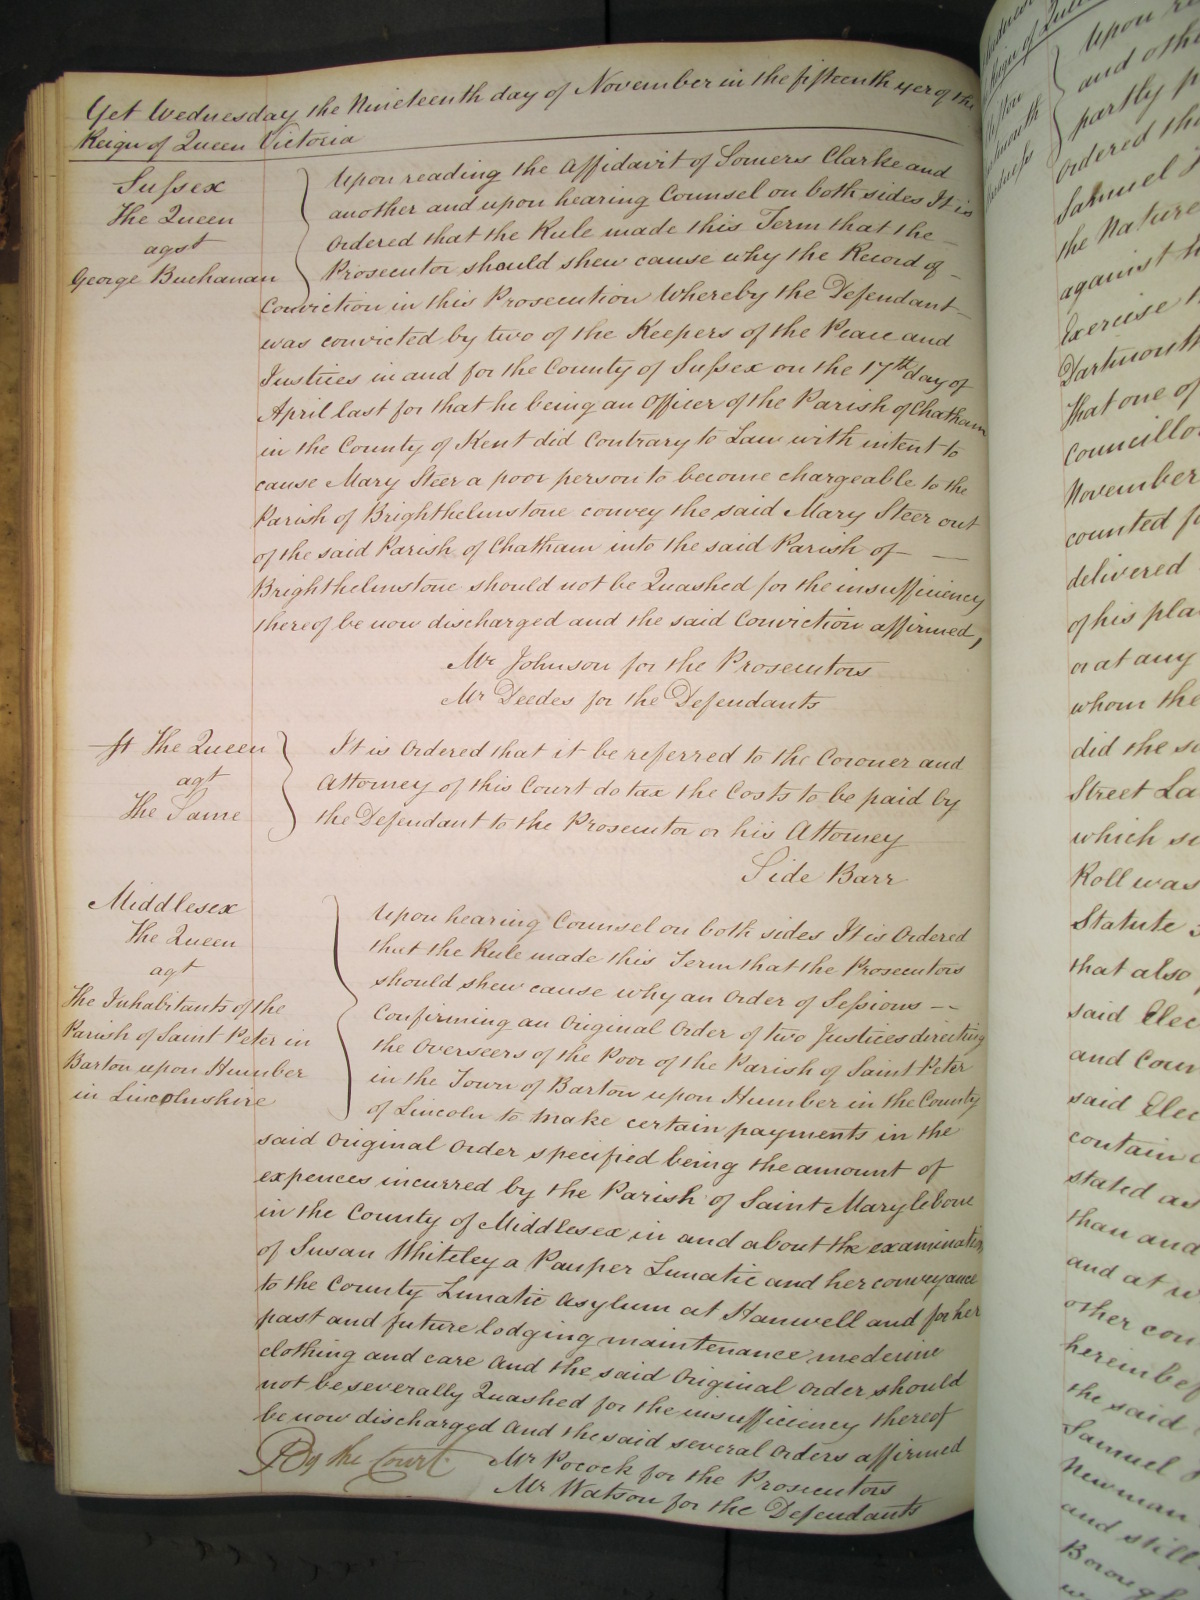 Yet Wednesday the Nineteenth day of November in the fifteenth yer of the
Reign of Queen Victoria
Sussex
The Queen
agst
George Buchanan
Upon reading the Affidavit of Somers Clarke and
another and upon hearing Counsel on both sides It is
Ordered that the Rule made this Term that the
Prosecutor should shew cause why the Record of
Conviction in this Prosecution Whereby the Defendant
was convicted by two of the Keepers of the Peace and
Justices in and for the County of Sussex on the 17th day of
April last for that he being an Officer of the Parish of Chatham
in the County of Kent did Contrary to Law with intent to
cause Mary Steer a poor person to become chargeable to the
Parish of Brighthelmstone convey the said Mary Steer out
of the said Parish of Chatham into the said Parish of
Brighthelmstone should not be Quashed for the insufficiency
thereof be now discharged and the said Conviction affirmed,
Mr Johnson for the Prosecutors
Mr Deedes for the Defendants
The Queen
agt
The Same
It is Ordered that it be referred to the Coroner and
Attorney of this Court do tax the Costs to be paid by
the Defendant to the Prosecutor or his Attorney
Side Barr
Middlesex
The Queen
agt
The Inhabitants of the
Parish of Saint Peter in
Barton upon Humber
in Lincolnshire
Upon hearing Counsel on both sides It is Ordered
that the Rule made this Term that the Prosecutors
should shew cause why an Order of Sessions
Confirming an Original Order of two Justices directing
the Overseers of the Poor of the Parish of Saint Peter
in the Town of Barton upon Humber in the County
of Lincoln to make certain payments in the
said Original Order specified being the amount of
expences incurred by the Parish of Saint Marylebone
in the County of Middlesex in and about the examination
of Susan Whiteley a Pauper Lunatic and her conveyance
to the County Lunatic Asylum at Hanwell and for her
past and future lodging maintenance medicine
clothing and care And the said Original Order should
not be severally Quashed for the insufficiency thereof
be now discharged And the said several Orders affirmed
By the Court.
Mr Pocock for the Prosecutors
Mr Watson for the Defendants
Upon re
and othe
partly p
Ordered tha
Samuel
the Nature
against h
Exercise
Dartmouth
That one of
Councillo
November
counted f
delivered
of his pla
or at any
whom the
did the s
Street La
which s
Roll was
Statute
that also
said Elec
and Coun
said Elec
contain
stated as
than and
and at
other con
hereinbef
the said
Samuel
Newman
and still
Borough